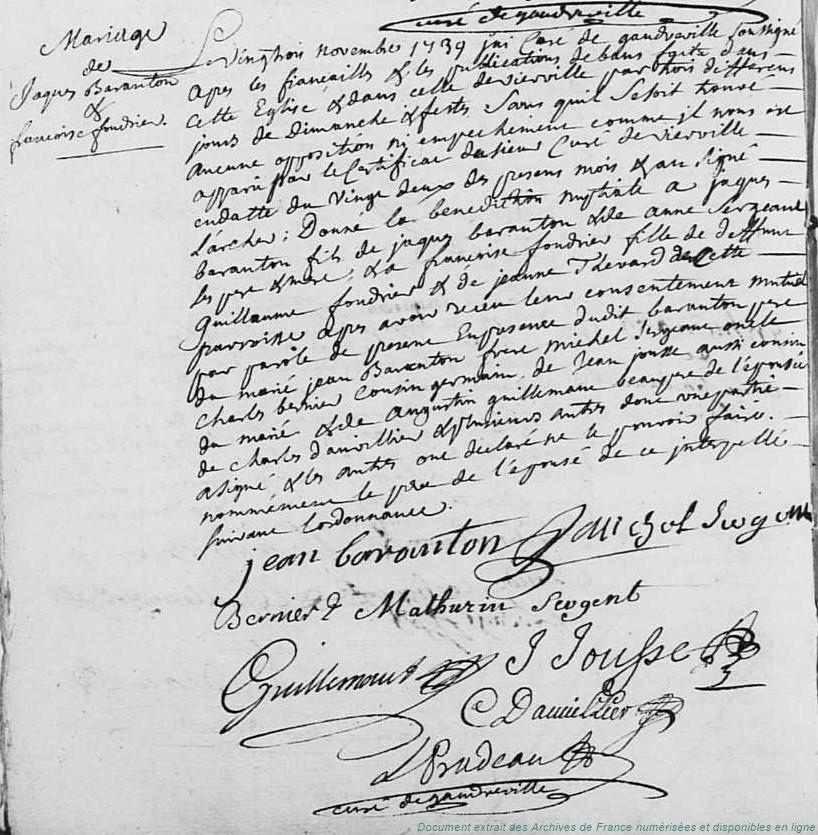 curé de gaudreville
Mariage
de
Jaques Baranton
&
francoise foudrier.
Le vingtrois novembre 1739 jai Curé de gaudreville Soussigné
apes les fiancaills & les publications de bans faite dans
cette Eglise & dans celle de vierville par trois differens
jours de dimanche & festes Sans quil Se soit trouvé
aucune opposition ni empechement comme jl nous est
apparu par le Certificat du sieur Curé de vierville
endatte du vingt deux des presens mois & an Signé
Larcher; Donné la benediction nuptiale a jaques
baranton fils de jaques baranton & de anne Sergeant
Ses pere & mere, & a francoise foudrier fille de deffunt
Guillaume foudrier & de jeanne Thevard de Cette
parroisse apes avoir receu leur consentement mutuel
par parole de present En presence dudit baranton pere
du marié jean Baranton frere michel Sergeant oncle
Charles bernier cousin germain, de Jean jousse aussi cousin
du marié & de Augustin guillemaut beaupere de l'épousée
de Charles dauvillier & plusieurs autres dont une partie
a signé & les autres ont declaré ne le pouvoir faire.
nommément le pere de l'épousé de ce jnterpellé
suivant lordonnance.
jean baranton Michel Sergent
Bernier Mathurin Sergent
Guillemaut J Jousse
C Dauvillier
Prudeau
curé de gaudreville
Document extrait des Archives de France numérisées et disponibles en ligne